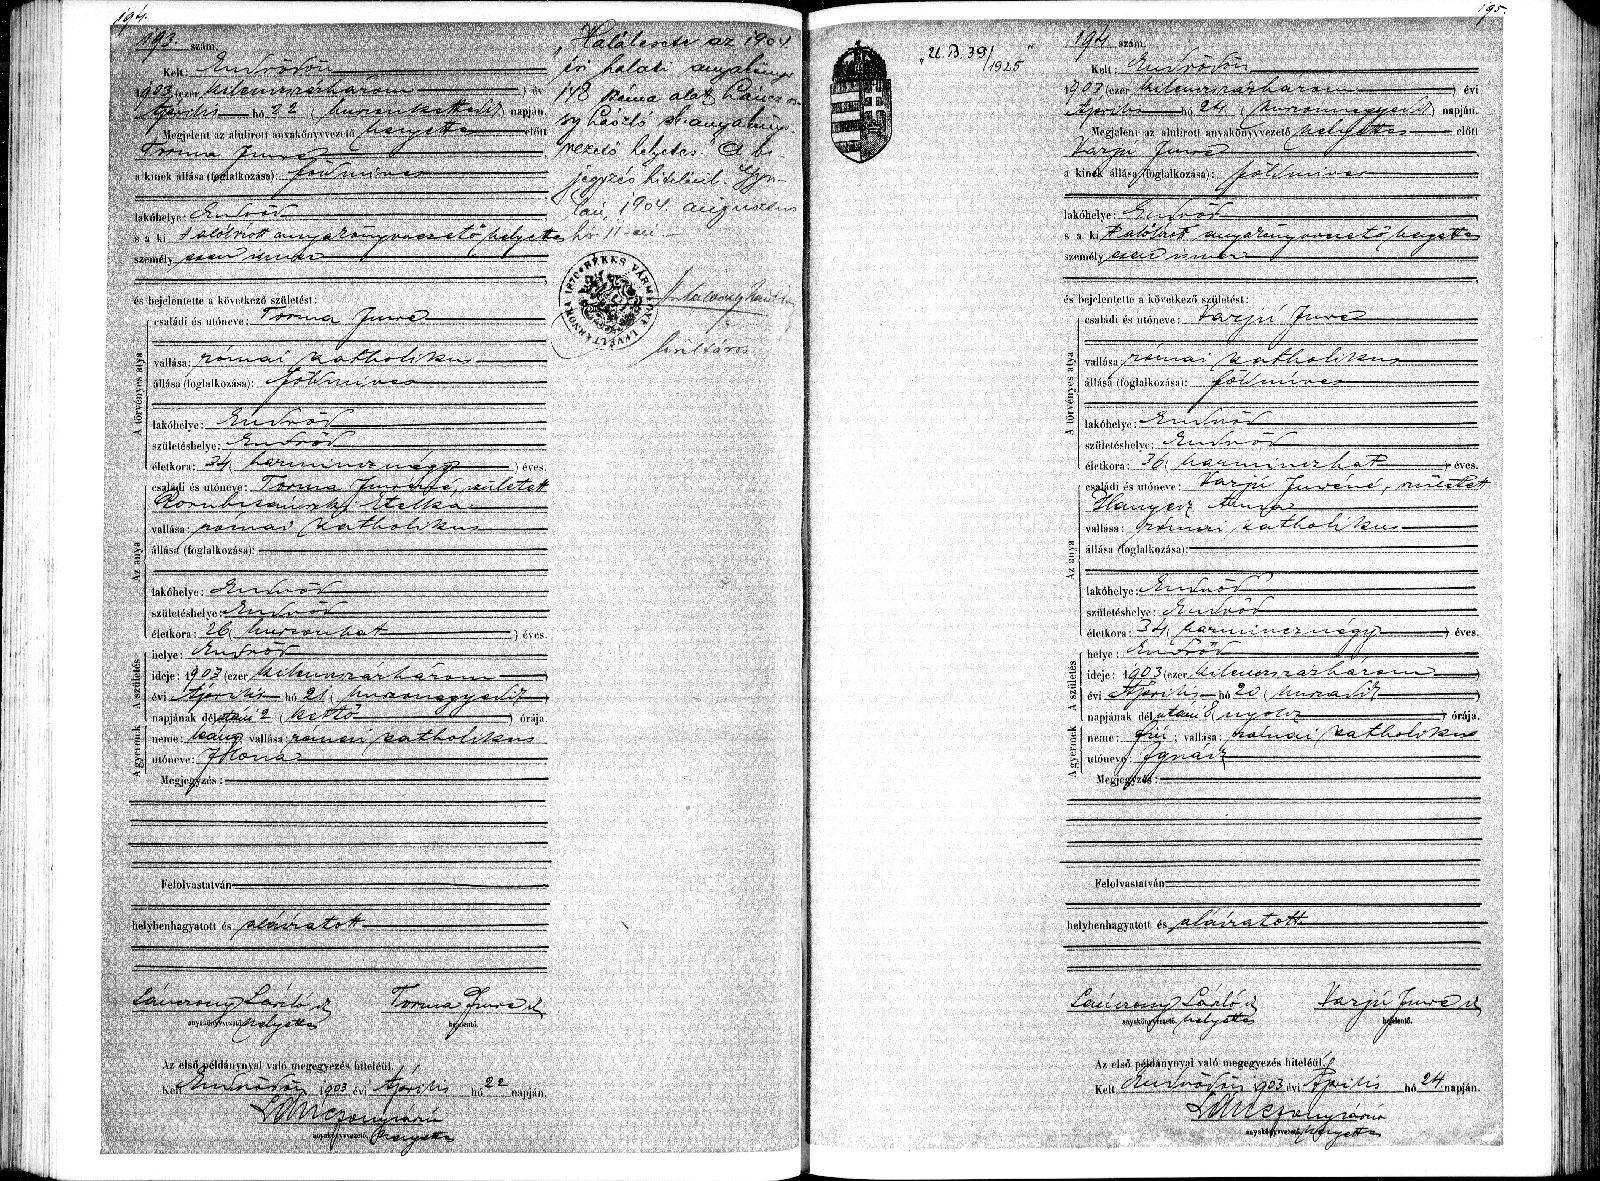 194.
193. szám.
Kelt: Endrődön
1903 (ezer kilenczszázhárom ) év
Április hó 22 ( huszonkettedik ) napján.
Megjelent az alulirott anyakönyvvezető helyettes előtt
Torma Imre
a kinek állása (foglalkozása): földmíves
lakóhelye: Endrőd
s a ki t alólírott anyakönyvvezető helyettes
személy esen ismer
és bejelentette a következő születést:
A törvényes atya
családi és utóneve: Torma Imre
vallása: római katholikus
állása (foglalkozása): földmíves
lakóhelye: Endrőd
születéshelye: Endrőd
életkora: 34 ( harmincznégy ) éves.
Az anya
családi és utóneve: Torma Imréné, született
Etelka
vallása: római katholikus
állása (foglalkozása):
lakóhelye: Endrőd
születéshelye: Endrőd
életkora: 26 ( huszonhat ) éves.
A születés
helye: Endrőd
ideje: 1903 (ezer kilenczszázhárom )
évi Április hó 21 ( huszonegyedik )
napjának délutáni 2 ( kettő ) órája.
A gyermek
neme: leány vallása: római katholikus
utóneve: Ilona
Megjegyzés:
Felolvastatván
helybenhagyatott és aláíratott
Lánczony László
anyakönyvvezető helyettes
Torma Imre
bejelentő.
Az első példánynyal való megegyezés hiteléül.
Kelt Endrődön 1903 évi Április hó 22 napján.
anyakönyvvezető, helyettes
"Halálesete az 1904.
évi halotti anyakönyv
178 száma alatt
László s. anyakönyv-
vezető helyettes." A be-
jegyzés hiteléül. Gyu-
lán, 1904. augusztus
hó 11-én
BÉKÉS VÁRMEGYE LEVÉLTÁRNOKA 1870
levéltáros
"U. B. 39/1925"
195.
194 szám.
Kelt: Endrődön
1903 (ezer kilenczszázhárom ) évi
Április hó 24 ( huszonnegyedik ) napján.
Megjelent az alulirott anyakönyvvezető helyettes előtt
Varjú Imre
a kinek állása (foglalkozása): földmíves
lakóhelye: Endrőd
s a ki t alólírott anyakönyvvezető helyettes
személy esen ismer
és bejelentette a következő születést:
A törvényes atya
családi és utóneve: Varjú Imre
vallása: római katholikus
állása (foglalkozása): földmíves
lakóhelye: Endrőd
születéshelye: Endrőd
életkora: 36 ( harminczhat ) éves.
Az anya
családi és utóneve: Varjú Imréné, született
Hanyecz Anna
vallása: római katholikus
állása (foglalkozása):
lakóhelye: Endrőd
születéshelye: Endrőd
életkora: 34 ( harmincznégy ) éves.
A születés
helye: Endrőd
ideje: 1903 (ezer kilenczszázhárom )
évi Április hó 20 ( huszadik )
napjának délutáni 8 ( nyolcz ) órája.
A gyermek
neme: fiú; vallása: római katholikus
utóneve: Ignácz
Megjegyzés:
Felolvastatván
helybenhagyatott és aláíratott
Lánczony László
anyakönyvvezető, helyettes
Varjú Imre
bejelentő.
Az első példánynyal való megegyezés hiteléül.
Kelt Endrődön 1903 évi Április hó 24 napján.
anyakönyvvezető, helyettes